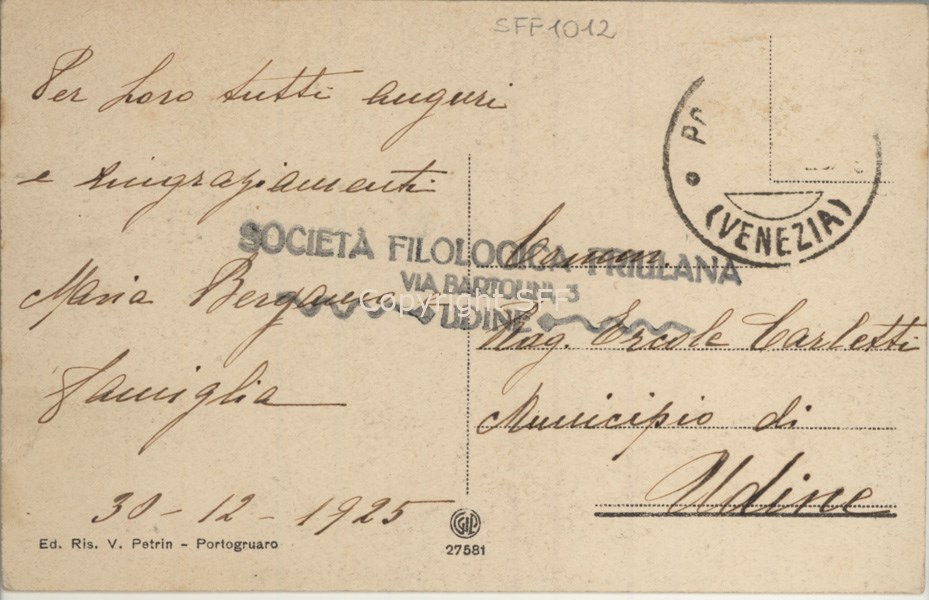 SFF1012
Per Loro tutti auguri
e ringraziamenti
Maria Bergamo e
famiglia
30-12-1925
Ed. Ris. V. Petrin - Portogruaro
GIP
27581
SOCIETÀ FILOLOGICA FRIULANA
VIA BARTOLINI, 3
UDINE
Copyright SFF
(VENEZIA)
Rag. Ercole Carletti
Municipio di
Udine